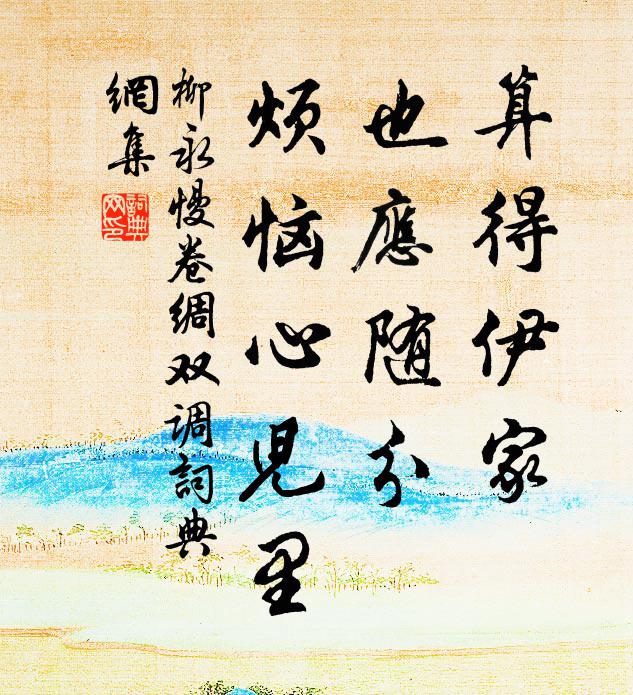 算得伊家
也應随分
烦恼心兒里
柳永慢卷綢双调詞典
網集
詞典
网印